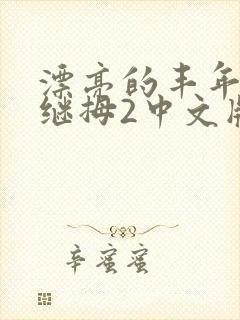 漂亮的丰年
继拇2中文版
辛蜜蜜